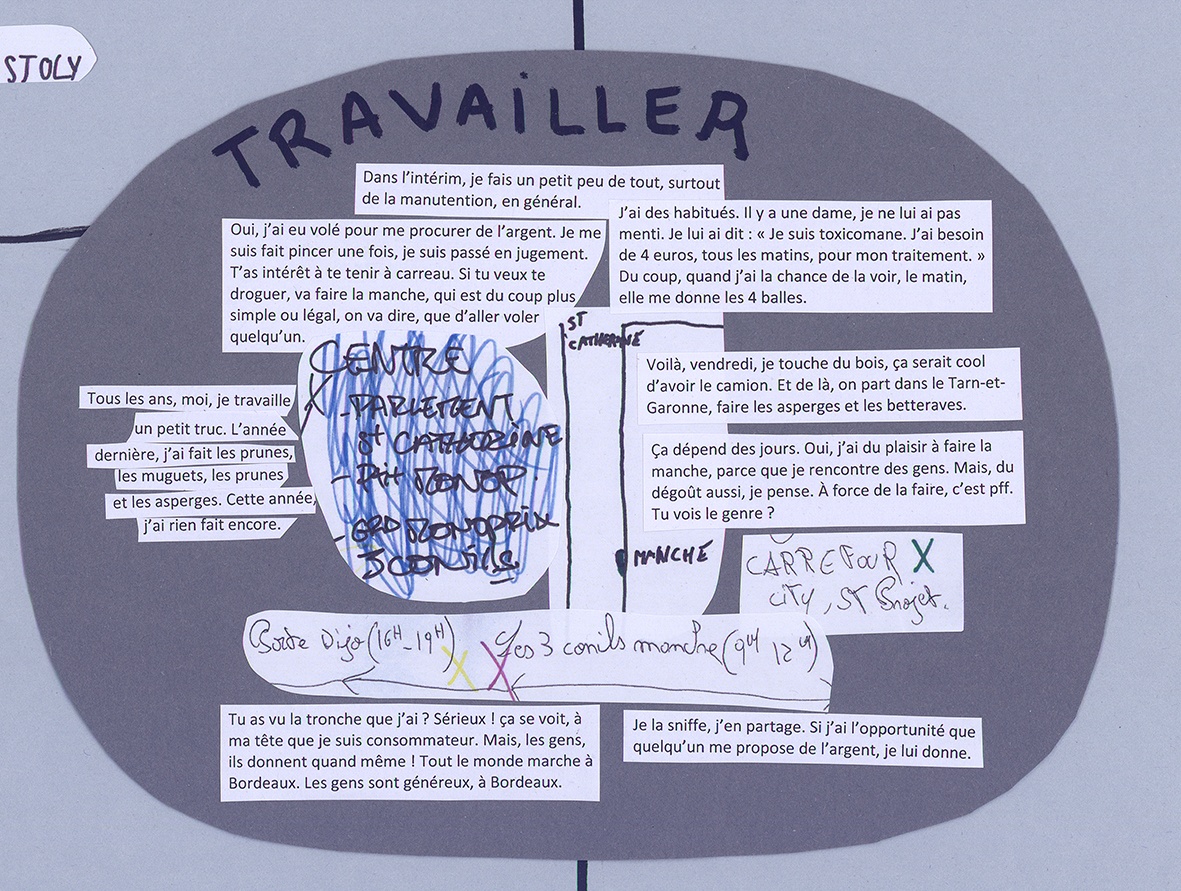 STOLY
TRAVAILLER
Dans l'intérim, je fais un petit peu de tout, surtout
de la manutention, en général.
Oui, j'ai eu volé pour me procurer de l'argent. Je me
suis fait pincer une fois, je suis passé en jugement.
T'as intérêt à te tenir à carreau. Si tu veux te
droguer, va faire la manche, qui est du coup plus
simple ou légal, on va dire, que d'aller voler
quelqu'un.
J'ai des habitués. Il y a une dame, je ne lui ai pas
menti. Je lui ai dit : « Je suis toxicomane. J'ai besoin
de 4 euros, tous les matins, pour mon traitement. »
Du coup, quand j'ai la chance de la voir, le matin,
elle me donne les 4 balles.
ST
CATHERINE
MANCHE
CENTRE
- PARLEMENT
St CATHERINE
- Ptt MONOP
- GRD MONOPRIX
3 CONILS
Voilà, vendredi, je touche du bois, ça serait cool
d'avoir le camion. Et de là, on part dans le Tarn-et-
Garonne, faire les asperges et les betteraves.
Tous les ans, moi, je travaille
un petit truc. L'année
dernière, j'ai fait les prunes,
les muguets, les prunes
et les asperges. Cette année,
j'ai rien fait encore.
Ça dépend des jours. Oui, j'ai du plaisir à faire la
manche, parce que je rencontre des gens. Mais, du
dégoût aussi, je pense. À force de la faire, c'est pff.
Tu vois le genre ?
CARREFOUR X
City, ST Projet.
Porte Dijo (16H - 19H) X X Les 3 conils manche (9H 12H)
Tu as vu la tronche que j'ai ? Sérieux ! ça se voit, à
ma tête que je suis consommateur. Mais, les gens,
ils donnent quand même ! Tout le monde marche à
Bordeaux. Les gens sont généreux, à Bordeaux.
Je la sniffe, j'en partage. Si j'ai l'opportunité que
quelqu'un me propose de l'argent, je lui donne.